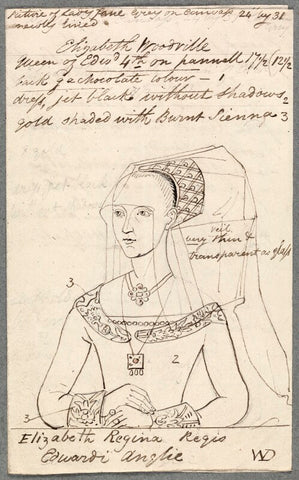 Picture of Lady Jane Grey on Canvass 24 by 31
newly lined
Elizabeth Woodville
Queen of Edwd 4th on pannell 17½ (12½
back ga chocolate colour — 1
dress, jet black without shadows 2
gold shaded with Burnt Sienna 3
veil
very thin &
transparent as glass
3
2
3
Elizabeth Regina Regis
Edwardi Anglie
WD